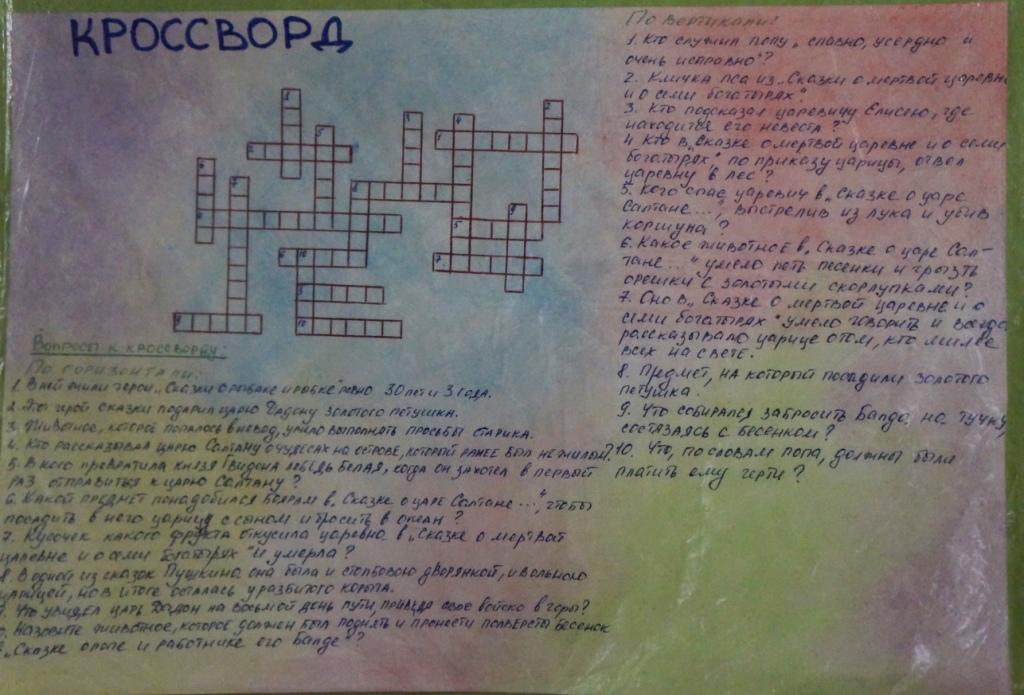 КРОССВОРД
Вопросы к кроссворду:
По горизонтали:
1. В ней жили герои „Сказки о рыбаке и рыбке" ровно 30 лет и 3 года.
2. Этот герой сказки подарил царю Дадону золотого петушка.
3. Животное, которое попалось в невод, умело выполнять просьбы старика.
4. Кто рассказывал царю Салтану о чудесах на острове, который ранее был не жилым?
5. В кого превратила князя Гвидона лебедь белая, когда он захотел в первый
раз отправиться к царю Салтану?
6. Какой предмет понадобился боярам в „Сказке о царе Салтане ...", чтобы
посадить в него царицу с сыном и бросить в океан?
7. Кусочек какого фрукта откусила царевна в „Сказке о мертвой
царевне и о семи богатырях" и умерла?
8. В одной из сказок Пушкина она была и столбовою дворянкой, и вольною
царицей, но в итоге осталась у разбитого корыта.
9. Что увидел царь Дадон на восьмой день пути, приведя свое войско в горы?
Назовите животное, которое должен был поднять и пронести полверсты бесенок
„Сказке о попе и работнике его Балде"?
По вертикали:
1. Кто служил попу „славно, усердно и
очень исправно"?
2. Кличка пса из „Сказки о мертвой царевне
и о семи богатырях".
3. Кто подсказал царевичу Елисею, где
находится его невеста?
4. Кто в „Сказке о мертвой царевне и о семи
богатырях" по приказу царицы, отвел
царевну в лес?
5. Кого спас царевич в „Сказке о царе
Салтане ...", выстрелив из лука и убив
коршуна?
6. Какое животное в „Сказке о царе Сал-
тане ..." умело петь песенки и грызть
орешки с золотыми скорлупками?
7. Оно в „Сказке о мертвой царевне и о
семи богатырях" умело говорить и всегда
рассказывало царице о том, кто милее
всех на свете.
8. Предмет, на который посадили золотого
петушка.
9. Что собирался забросить Балда на тучку,
состязаясь с бесенком?
10. Что, по словам попа, должны были
платить ему черти?